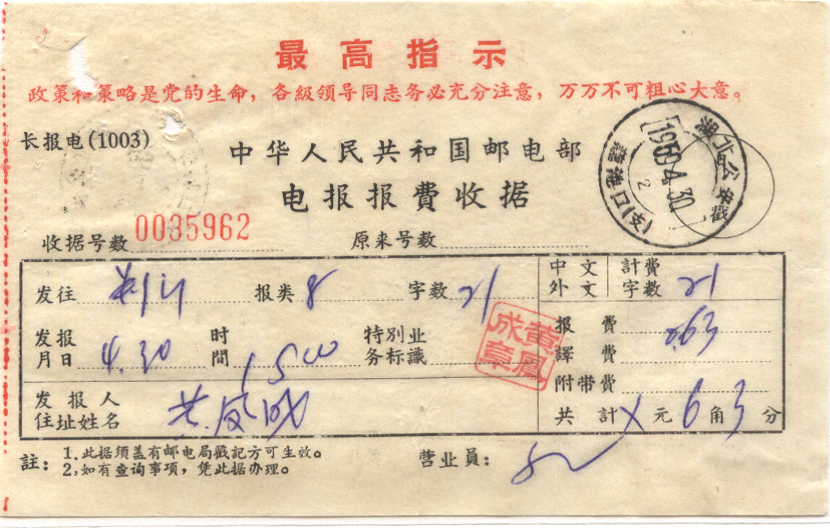 最高指示
政策和策略是党的生命，各級领导同志务必充分注意，万万不可粗心大意。
长报电(1003)
中华人民共和国邮电部
电报报费收据
1969.4.30
港口(支)
戳
收据号数 0035962 原来号数
发往 报类 8 字数 21
中文 外文 計費字数 21
发报月日 4.30 时間 1500 特别业务标識
报費 0.63
譯費
附带費
发报人住址姓名 黄凤成
黄鳳成章
共計 X 元 6 角 3 分
註：1.此据须盖有邮电局戳記方可生效。
2,如有查询事項，凭此据办理。
营业员：